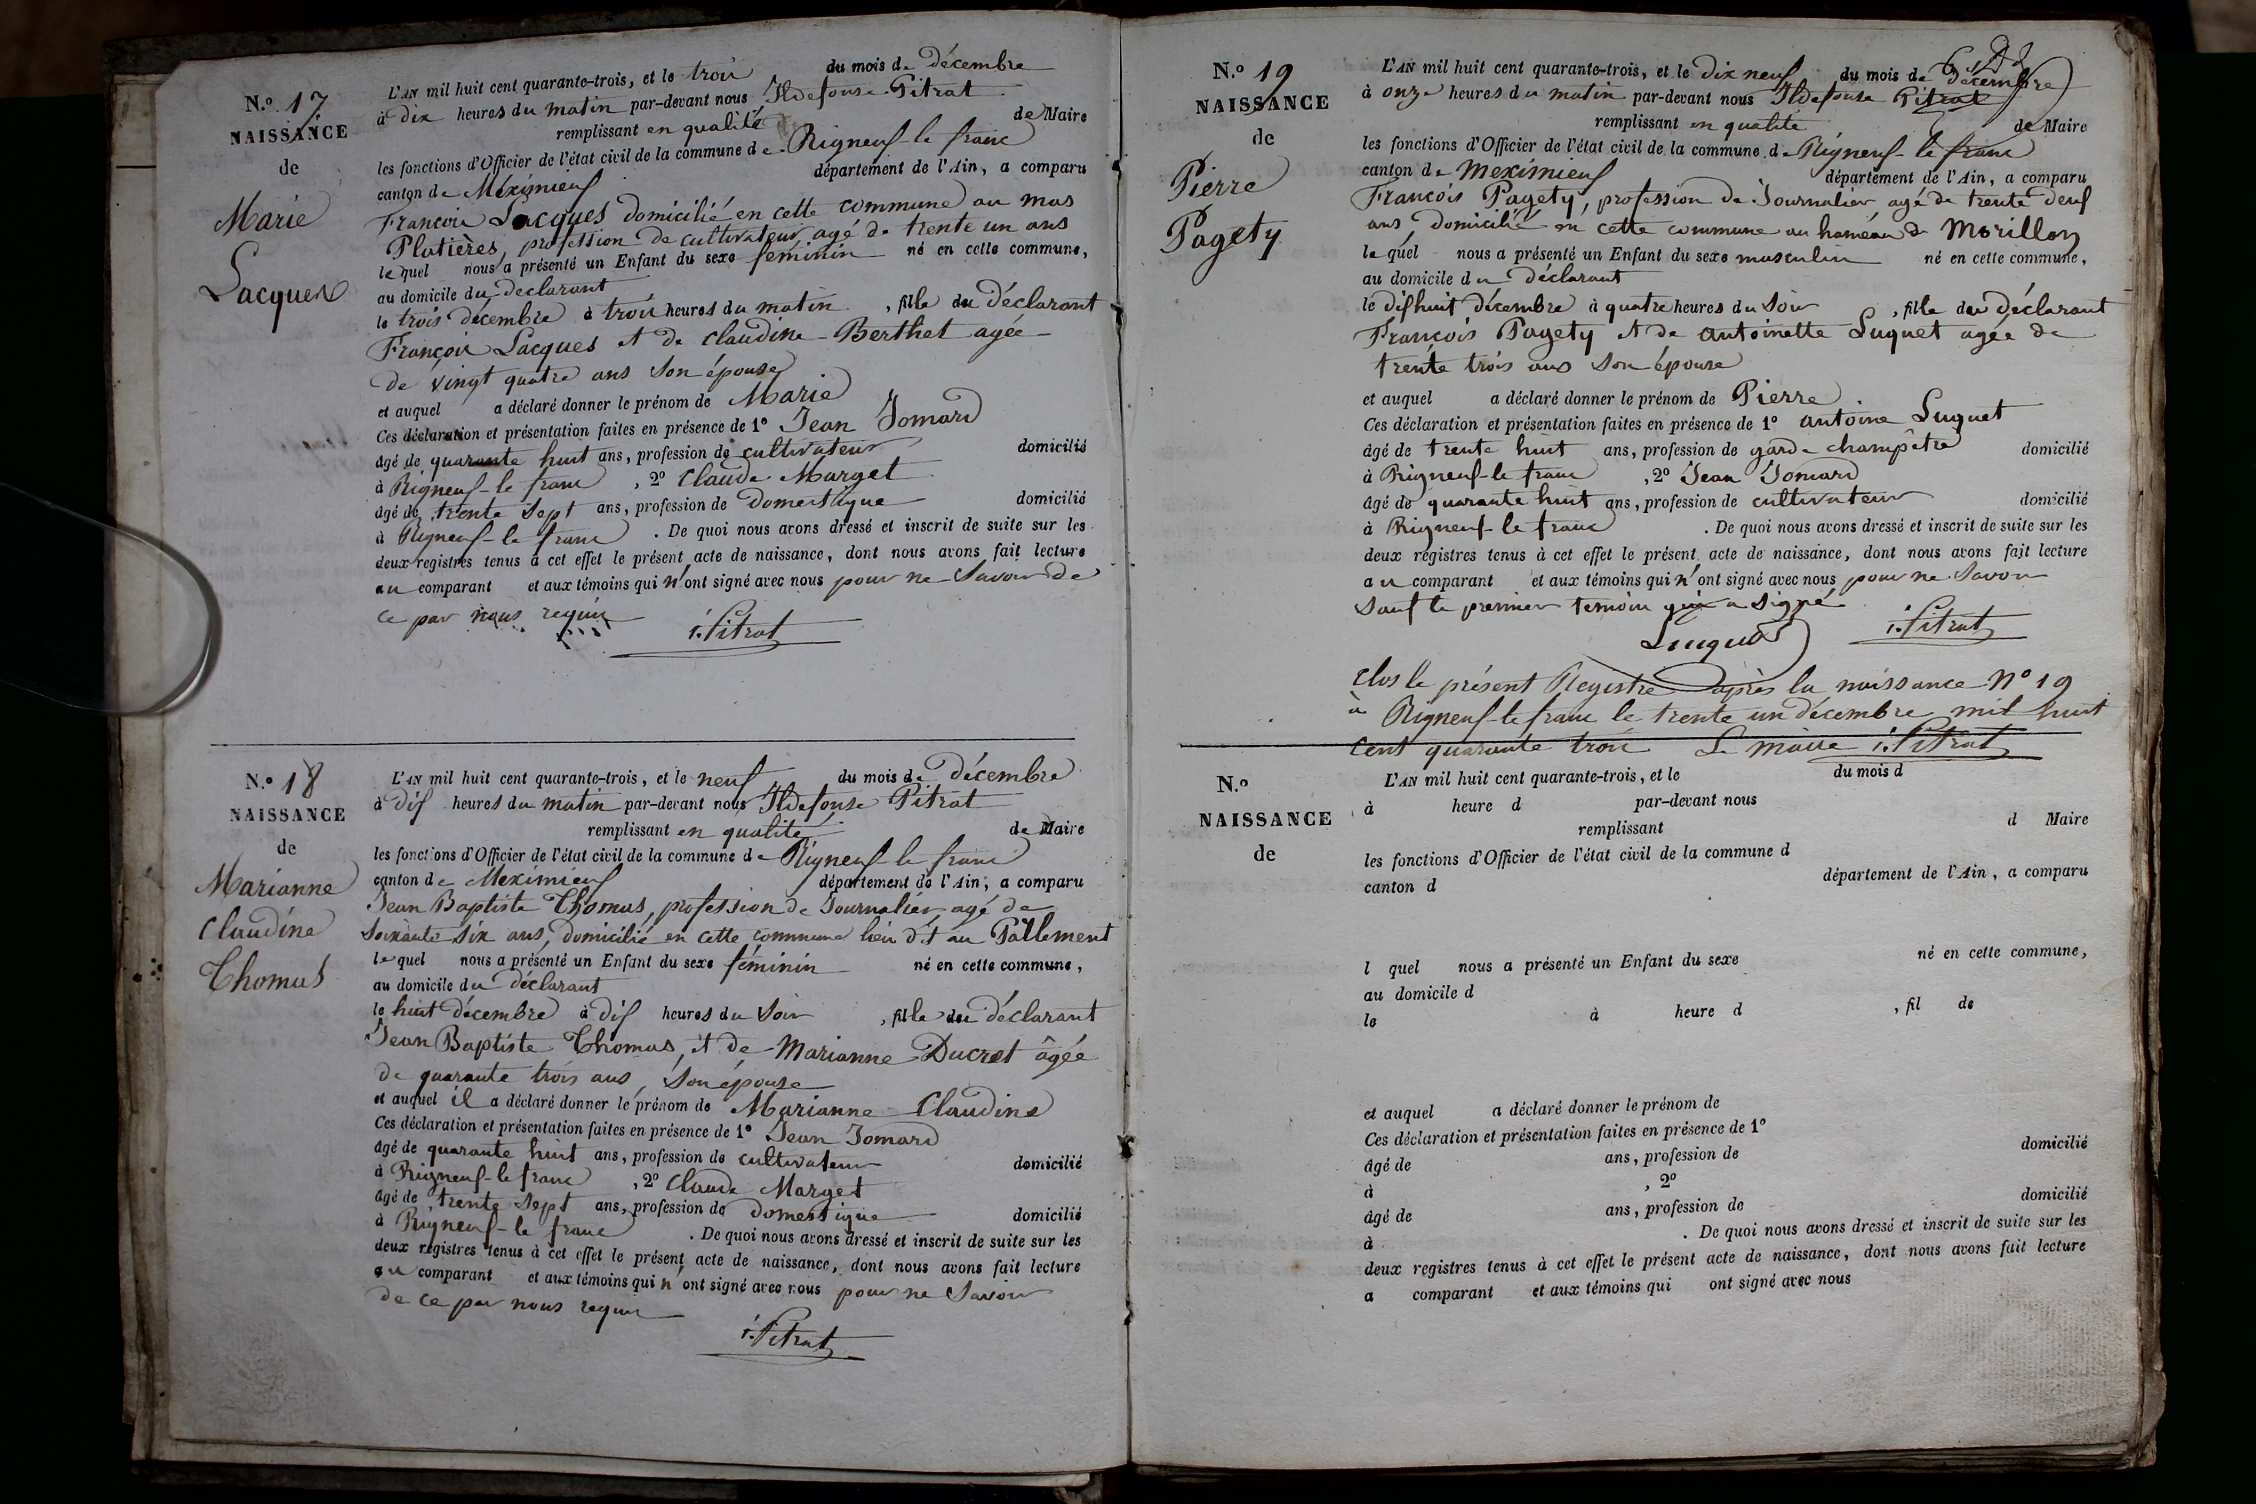 N.º 17
NAISSANCE
de
Marie
Lacques
L'AN mil huit cent quarante-trois, et le trois du mois de décembre
à dix heures du matin par-devant nous Ildefonse Pitrat
remplissant en qualité de Maire
les fonctions d'Officier de l'état civil de la commune de Rigneux-le franc
canton de Méximieux département de l'Ain, a comparu
François Lacques domicilié en cette commune au mas
Platières, profession de cultivateur agé de trente un ans
lequel nous a présenté un Enfant du sexe féminin né en cette commune,
au domicile du declarant
le trois décembre à trois heures du matin, fille du déclarant
François Lacques et de Claudine Berthet agée
de vingt quatre ans son épouse
et auquel a déclaré donner le prénom de Marie
Ces déclaration et présentation faites en présence de 1º Jean Jomard
âgé de quarante huit ans, profession de cultivateur domicilié
à Rigneux-le franc, 2º Claude Marget
âgé de trente sept ans, profession de domestique domicilié
à Rigneux-le franc. De quoi nous avons dressé et inscrit de suite sur les
deux registres tenus à cet effet le présent acte de naissance, dont nous avons fait lecture
au comparant et aux témoins qui n'ont signé avec nous pour ne savoir de
ce par nous requis
i. Pitrat
N.º 18
NAISSANCE
de
Marianne
Claudine
Thomas
L'AN mil huit cent quarante-trois, et le neuf du mois de décembre
à dix heures du matin par-devant nous Ildefonse Pitrat
remplissant en qualité de Maire
les fonctions d'Officier de l'état civil de la commune de Rigneux le franc
canton de Meximieux département de l'Ain, a comparu
Jean Baptiste Thomas, profession de Journalier, agé de
soixante six ans, domicilié en cette commune lieu dit au Paillement
lequel nous a présenté un Enfant du sexe féminin né en cette commune,
au domicile du déclarant
le huit décembre à dix heures du soir, fille du déclarant
Jean Baptiste Thomas, et de Marianne Ducret âgée
de quarante trois ans, son épouse
et auquel il a déclaré donner le prénom de Marianne Claudine
Ces déclaration et présentation faites en présence de 1º Jean Jomard
âgé de quarante huit ans, profession de cultivateur domicilié
à Rigneux-le franc, 2º Claude Marget
âgé de trente sept ans, profession de domestique domicilié
à Rigneux-le franc. De quoi nous avons dressé et inscrit de suite sur les
deux registres tenus à cet effet le présent acte de naissance, dont nous avons fait lecture
au comparant et aux témoins qui n'ont signé avec nous pour ne savoir
de ce par nous requis
i. Pitrat
N.º 19
NAISSANCE
de
Pierre
Pagety
L'AN mil huit cent quarante-trois, et le dix neuf du mois de décembre
à onze heures du matin par-devant nous Ildefonse Pitrat
remplissant en qualité de Maire
les fonctions d'Officier de l'état civil de la commune de Rigneux-le franc
canton de Meximieux département de l'Ain, a comparu
François Pagety, profession de Journalier agé de trente deux
ans, domicilié en cette commune au hameau de Morillon
lequel nous a présenté un Enfant du sexe masculin né en cette commune,
au domicile du déclarant
le dixhuit décembre à quatre heures du soir, fils du déclarant
François Pagety et de antoinette Luquet agée de
trente trois ans son épouse
et auquel a déclaré donner le prénom de Pierre
Ces déclaration et présentation faites en présence de 1º antoine Luquet
âgé de trente huit ans, profession de garde champêtre domicilié
à Rigneux-le franc, 2º Jean Jomard
âgé de quarante huit ans, profession de cultivateur domicilié
à Rigneux-le franc. De quoi nous avons dressé et inscrit de suite sur les
deux registres tenus à cet effet le présent acte de naissance, dont nous avons fait lecture
au comparant et aux témoins qui n'ont signé avec nous pour ne savoir
sauf le premier temoin qui a signé
Luquet i. Pitrat
Clos le présent Registre après la naissance Nº 19
à Rigneux-le franc le trente un décembre mil huit
cent quarante trois Le maire i. Pitrat
N.º
NAISSANCE
de
L'AN mil huit cent quarante-trois, et le du mois d
à heure d par-devant nous
remplissant d Maire
les fonctions d'Officier de l'état civil de la commune d
canton d département de l'Ain, a comparu
l quel nous a présenté un Enfant du sexe né en cette commune,
au domicile d
le à heure d , fil de
et auquel a déclaré donner le prénom de
Ces déclaration et présentation faites en présence de 1º
âgé de ans, profession de domicilié
à , 2º
âgé de ans, profession de domicilié
à . De quoi nous avons dressé et inscrit de suite sur les
deux registres tenus à cet effet le présent acte de naissance, dont nous avons fait lecture
a comparant et aux témoins qui ont signé avec nous